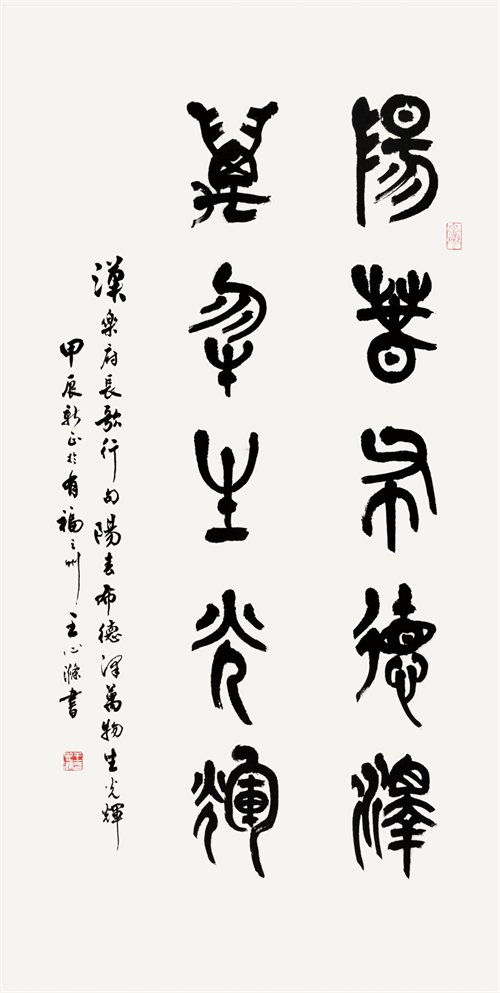 陽春布德澤
萬物生光輝
漢樂府長歌行句陽春布德澤萬物生光輝
甲辰新正於有福之州王心滌書